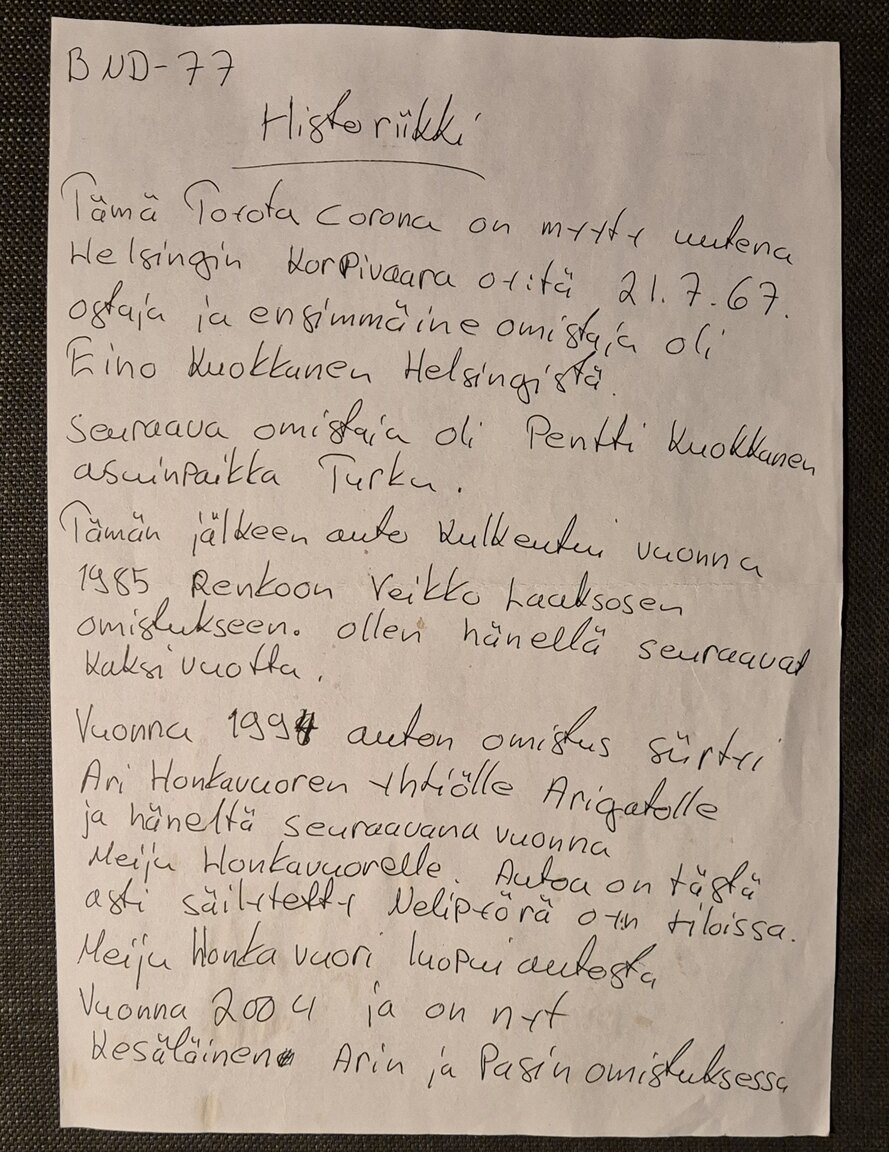 BND-77
Historiikki
Tämä Toyota Corona on myyty uutena
Helsingin Korpivaara oy:itä 21.7.67.
ostaja ja ensimmäine omistaja oli
Eino Kuokkanen Helsingistä.
Seuraava omistaja oli Pentti Kuokkanen
asuinpaikka Turku.
Tämän jälkeen auto kulkeutui vuonna
1985 Renkoon Veikko Laaksosen
omistukseen. ollen hänellä seuraavat
kaksi vuotta.
Vuonna 1994 auton omistus siirtyi
Ari Honkavuoren yhtiölle Arigatolle
ja häneltä seuraavana vuonna
Meiju Honkavuorelle. Autoa on tästä
asti säilytetty Nelipyörä oy:n tiloissa.
Meiju Honkavuori luopui autosta
Vuonna 2004 ja on nyt
Kesäläinen Arin ja Pasin omistuksessa